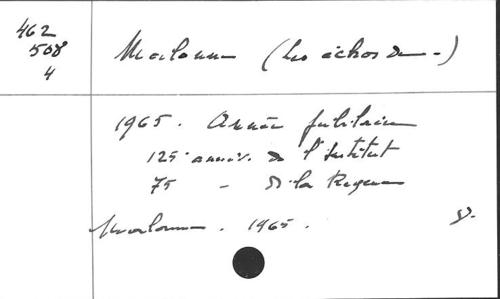 462
508
4
Malonne (Les échos de -)
1965. Année jubilaire
125e anniv. de l'Institut
75 - de la Région
Malonne. 1965.
8°.